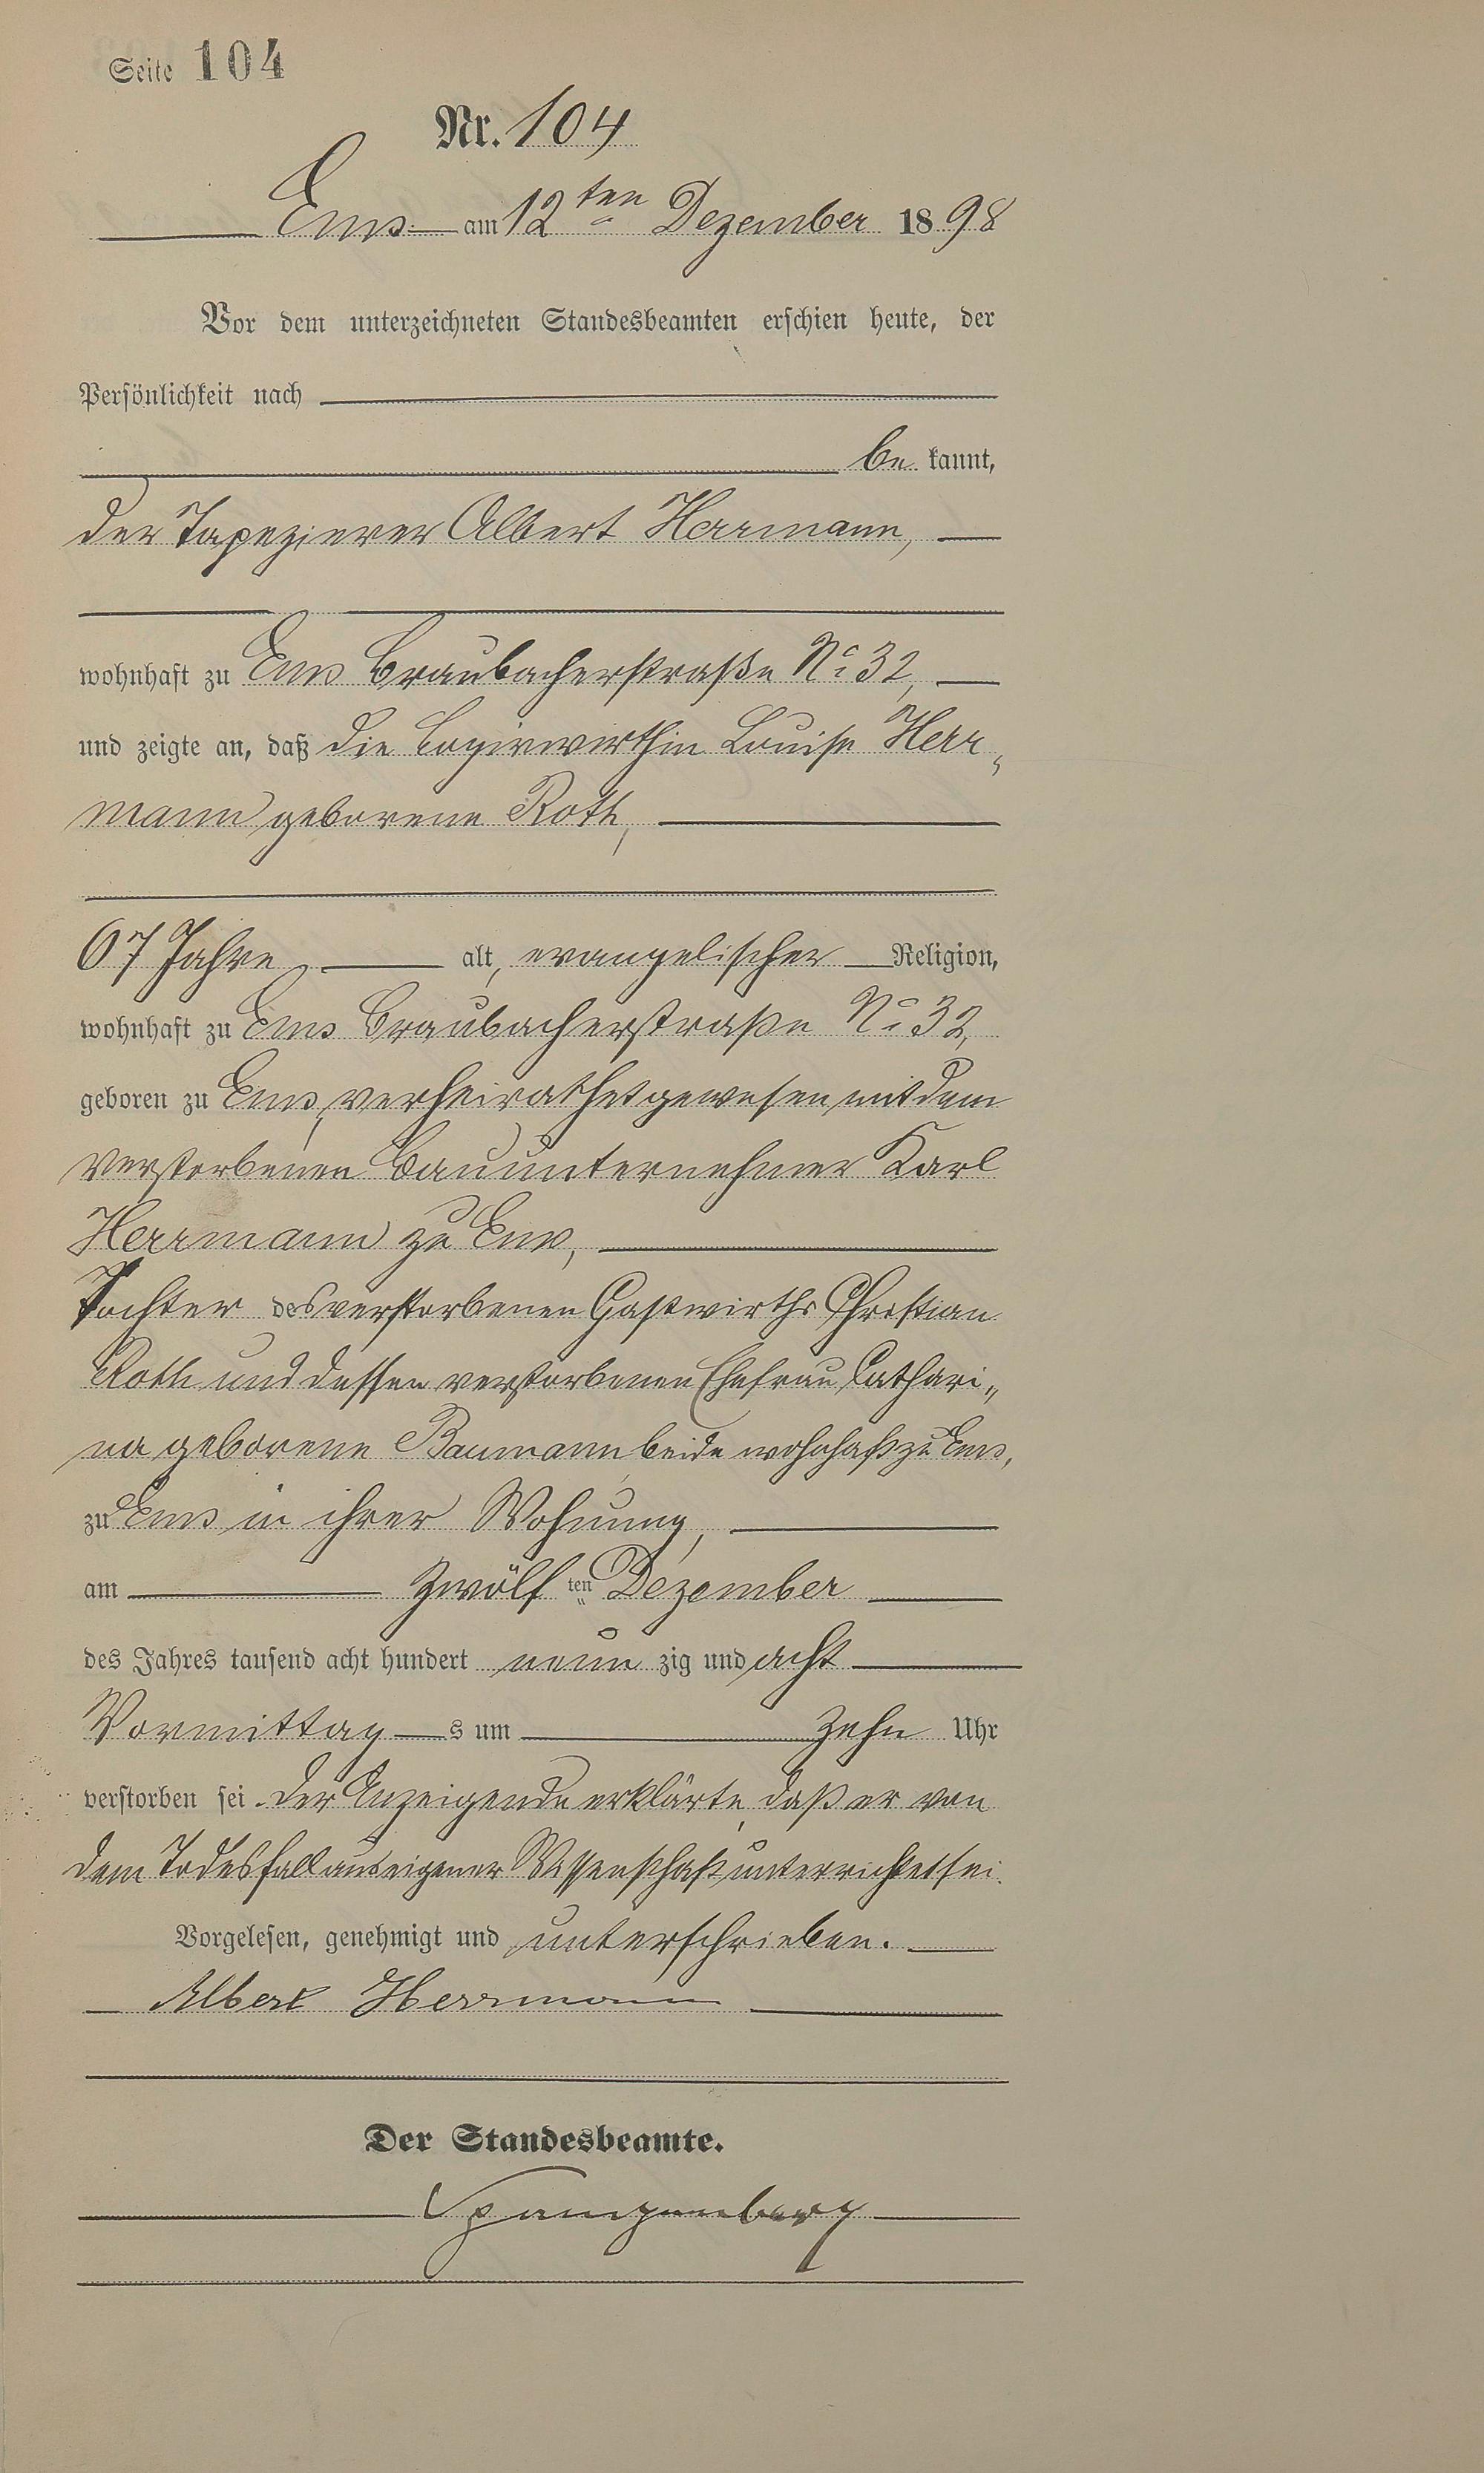 Seite 104
Nr. 104
Ems am 12ten Dezember 1898
Vor dem unterzeichneten Standesbeamten erschien heute, der
Persönlichkeit nach
be kannt,
der Tapezierer Albert Herrmann,
wohnhaft zu Ems Braubacherstraße No 32,
und zeigte an, daß die Logirwirthin Louise Herr„
mann geborene Roth,
67 Jahre, alt, evangelischer Religion,
wohnhaft zu Ems Braubacherstraße No 32,
geboren zu Ems, verheirathet gewesen mit dem
verstorbenen Bauunternehmer Karl
Herrmann zu Ems,
Tochter des verstorbenen Gastwirths Christian
Roth und dessen verstorbenen Ehefrau Cathari„
na geborene Baumann beide wohnhaft zu Ems,
zu Ems in ihrer Wohnung,
am zwölf ten Dezember
des Jahres tausend acht hundert neun zig und acht
Vormittag s um zehn Uhr
verstorben sei. Der Anzeigende erklärte, daß er von
dem Todesfall aus eigener Wissenschaft unterrichtet sei.
Vorgelesen, genehmigt und unterschrieben.
Albert Herrmann
Der Standesbeamte.
Spangenberg